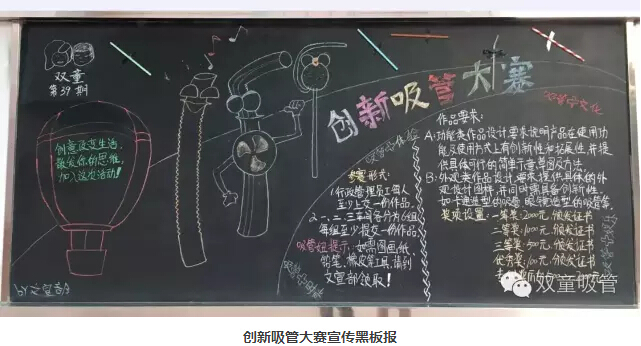 双童
第39期
创新吸管大赛
创意改变生活,
激发你的思维,
加入这次活动!
参赛形式:
1.行政管理员工每人
至少上交一份作品。
2.一、二、三车间各分为6组,
每组至少提交一份作品
吸管妞提示:如需图画纸、
铅笔、橡皮等工具,请到
文宣部领取!
作品要求:
A:功能类作品设计要求说明产品在使用功
能及使用方式上有创新性和拓展性,并提
供具体可行的简单示意草图及方法。
B:外观类作品设计,要求提供具体的外
观设计图样,并同时须具备创新性,
如卡通造型的吸管、眼镜造型的吸管等。
奖项设置:一等奖:2000元,颁发证书
二等奖:1000元,颁发证书
三等奖:500元,颁发证书
优秀奖:100元,颁发证书
by文宣部
双童吸管
创新吸管大赛宣传黑板报